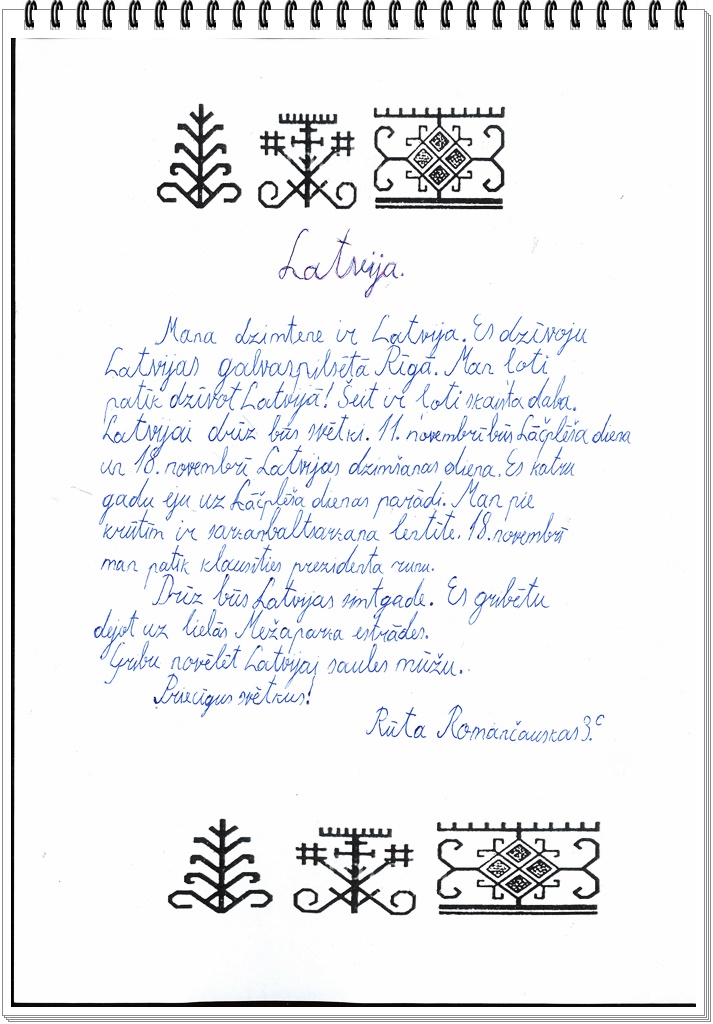 Latvija.
Mana dzimtene ir Latvija. Es dzīvoju
Latvijas galvaspilsētā Rīgā. Man ļoti
patīk dzīvot Latvijā! Šeit ir ļoti skaista daba.
Latvijai drīz būs svētki. 11. novembrī būs Lāčplēša diena
un 18. novembrī Latvijas dzimšanas diena. Es katru
gadu eju uz Lāčplēša dienas parādi. Man pie
krūtīm ir sarkanbaltsarkana lentīte. 18. novembrī
man patīk klausīties prezidenta runu.
Drīz būs Latvijas simtgade. Es gribētu
dejot uz lielās Mežaparka estrādes.
Gribu novēlēt Latvijai saules mūžu.
Priecīgus svētkus!
Rūta Romančauskas 3.c